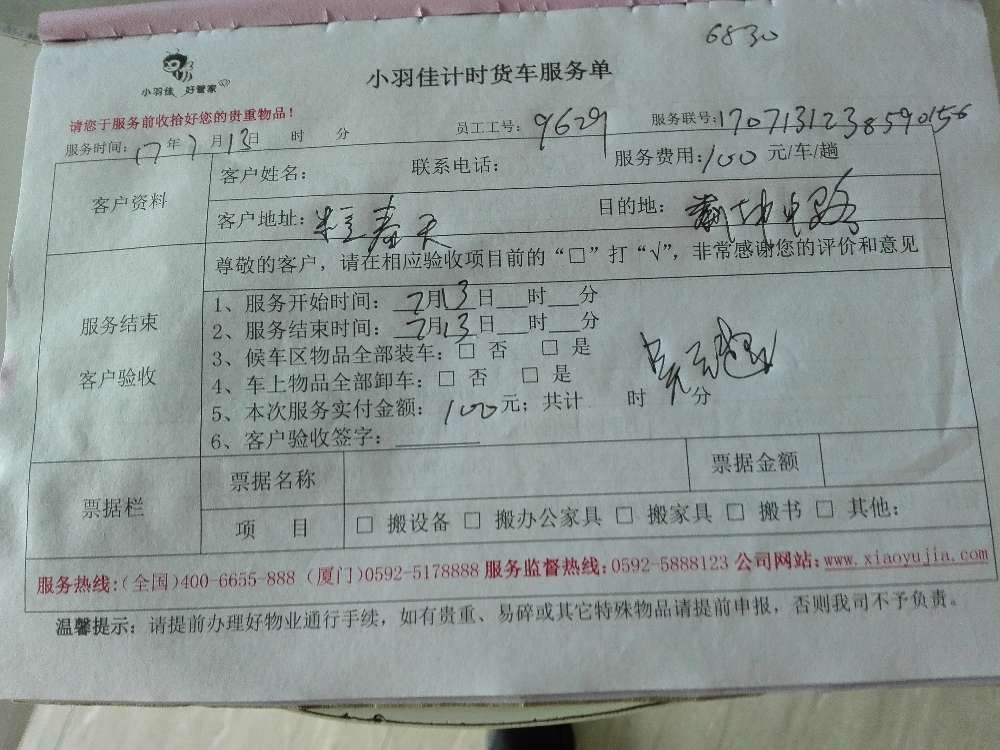 6830
小羽佳 好管家
小羽佳计时货车服务单
请您于服务前收拾好您的贵重物品！
服务时间：17年7月13日 时 分 员工工号：9629 服务联号：1707131238590156
客户资料
客户姓名： 联系电话： 服务费用：100元/车/趟
客户地址：春天 目的地：路
服务结束
客户验收
尊敬的客户，请在相应验收项目前的“□”打“√”，非常感谢您的评价和意见
1、服务开始时间：7月13日___时___分
2、服务结束时间：7月13日___时___分
3、候车区物品全部装车：□ 否 □ 是
4、车上物品全部卸车：□ 否 □ 是
5、本次服务实付金额：100元；共计 时 分
6、客户验收签字：________
票据栏
票据名称 票据金额
项 目 □ 搬设备 □ 搬办公家具 □ 搬家具 □ 搬书 □ 其他：
服务热线：（全国）400-6655-888（厦门）0592-5178888 服务监督热线：0592-5888123 公司网站：www.xiaoyujia.com
温馨提示：请提前办理好物业通行手续，如有贵重、易碎或其它特殊物品请提前申报，否则我司不予负责。